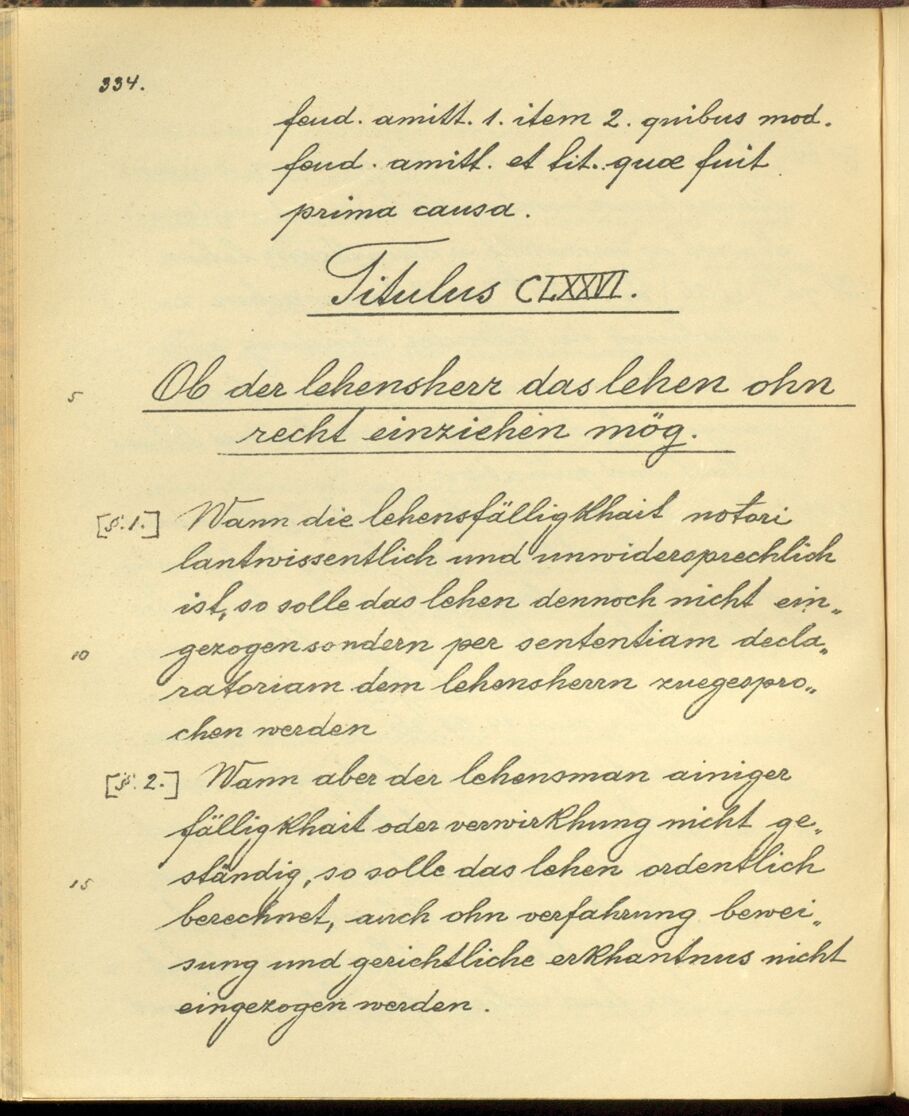 334.
feud. amitt. 1. item 2. quibus mod.
feud. amitt. et tit. quæ fuit
prima causa.
Titulus CLXXVI.
5 Ob der lehensherr das lehen ohn
recht einziehen mög.
[§. 1.] Wann die lehensfälligkhait notori
lantwissentlich und unwidersprechlich
ist, so solle das lehen dennoch nicht ein„
10 gezogen sondern per sententiam decla„
ratoriam dem lehensherrn zuegespro„
chen werden
[§. 2.] Wann aber der lehensman ainiger
fälligkhait oder verwirkhung nicht ge„
15 ständig, so solle das lehen ordentlich
berechnet, auch ohn verfahrung bewei„
sung und gerichtliche erkhantnus nicht
eingezogen werden.